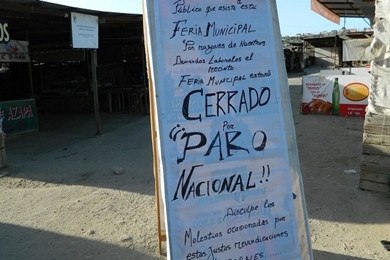 Público que asiste esta
Feria Municipal
"Por razones de Nuestras
Demandas Laborales el
recinto
Feria Municipal estará
CERRADO
Por
"PARO
Nacional!!
Disculpe las
Molestias ocasionadas por
estas justas reivindicaciones
LABORALES
OS
AZAPA